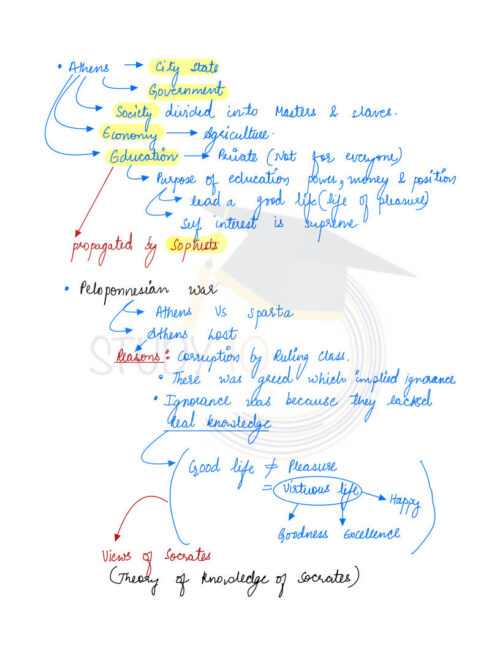 • Athens → City State
→ Government
→ Society divided into Masters & slaves.
→ Economy → Agriculture.
→ Education → Private (Not for everyone)
→ Purpose of education power, money & position
→ lead a good life (life of pleasure)
→ Self interest is supreme
propagated by Sophists
• Peloponnesian war
→ Athens Vs Sparta
→ Athens Lost
Reasons: Corruption by Ruling Class.
• There was greed which implied ignorance
• Ignorance was because they lacked
real knowledge
→ (Good life ≠ Pleasure
= Virtuous life → Happy
Goodness Excellence)
Views of Socrates
(Theory of knowledge of Socrates)